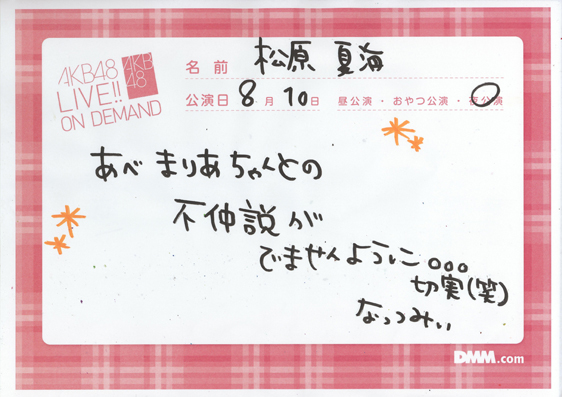 AKB48
LIVE!!
ON DEMAND
AKB
48
名前 松原 夏海
公演日 8月10日 昼公演・おやつ公演・夜公演
あべ まりあちゃんとの
不仲説が
でませんように。。。
切実(笑)
なっつみぃ
DMM.com